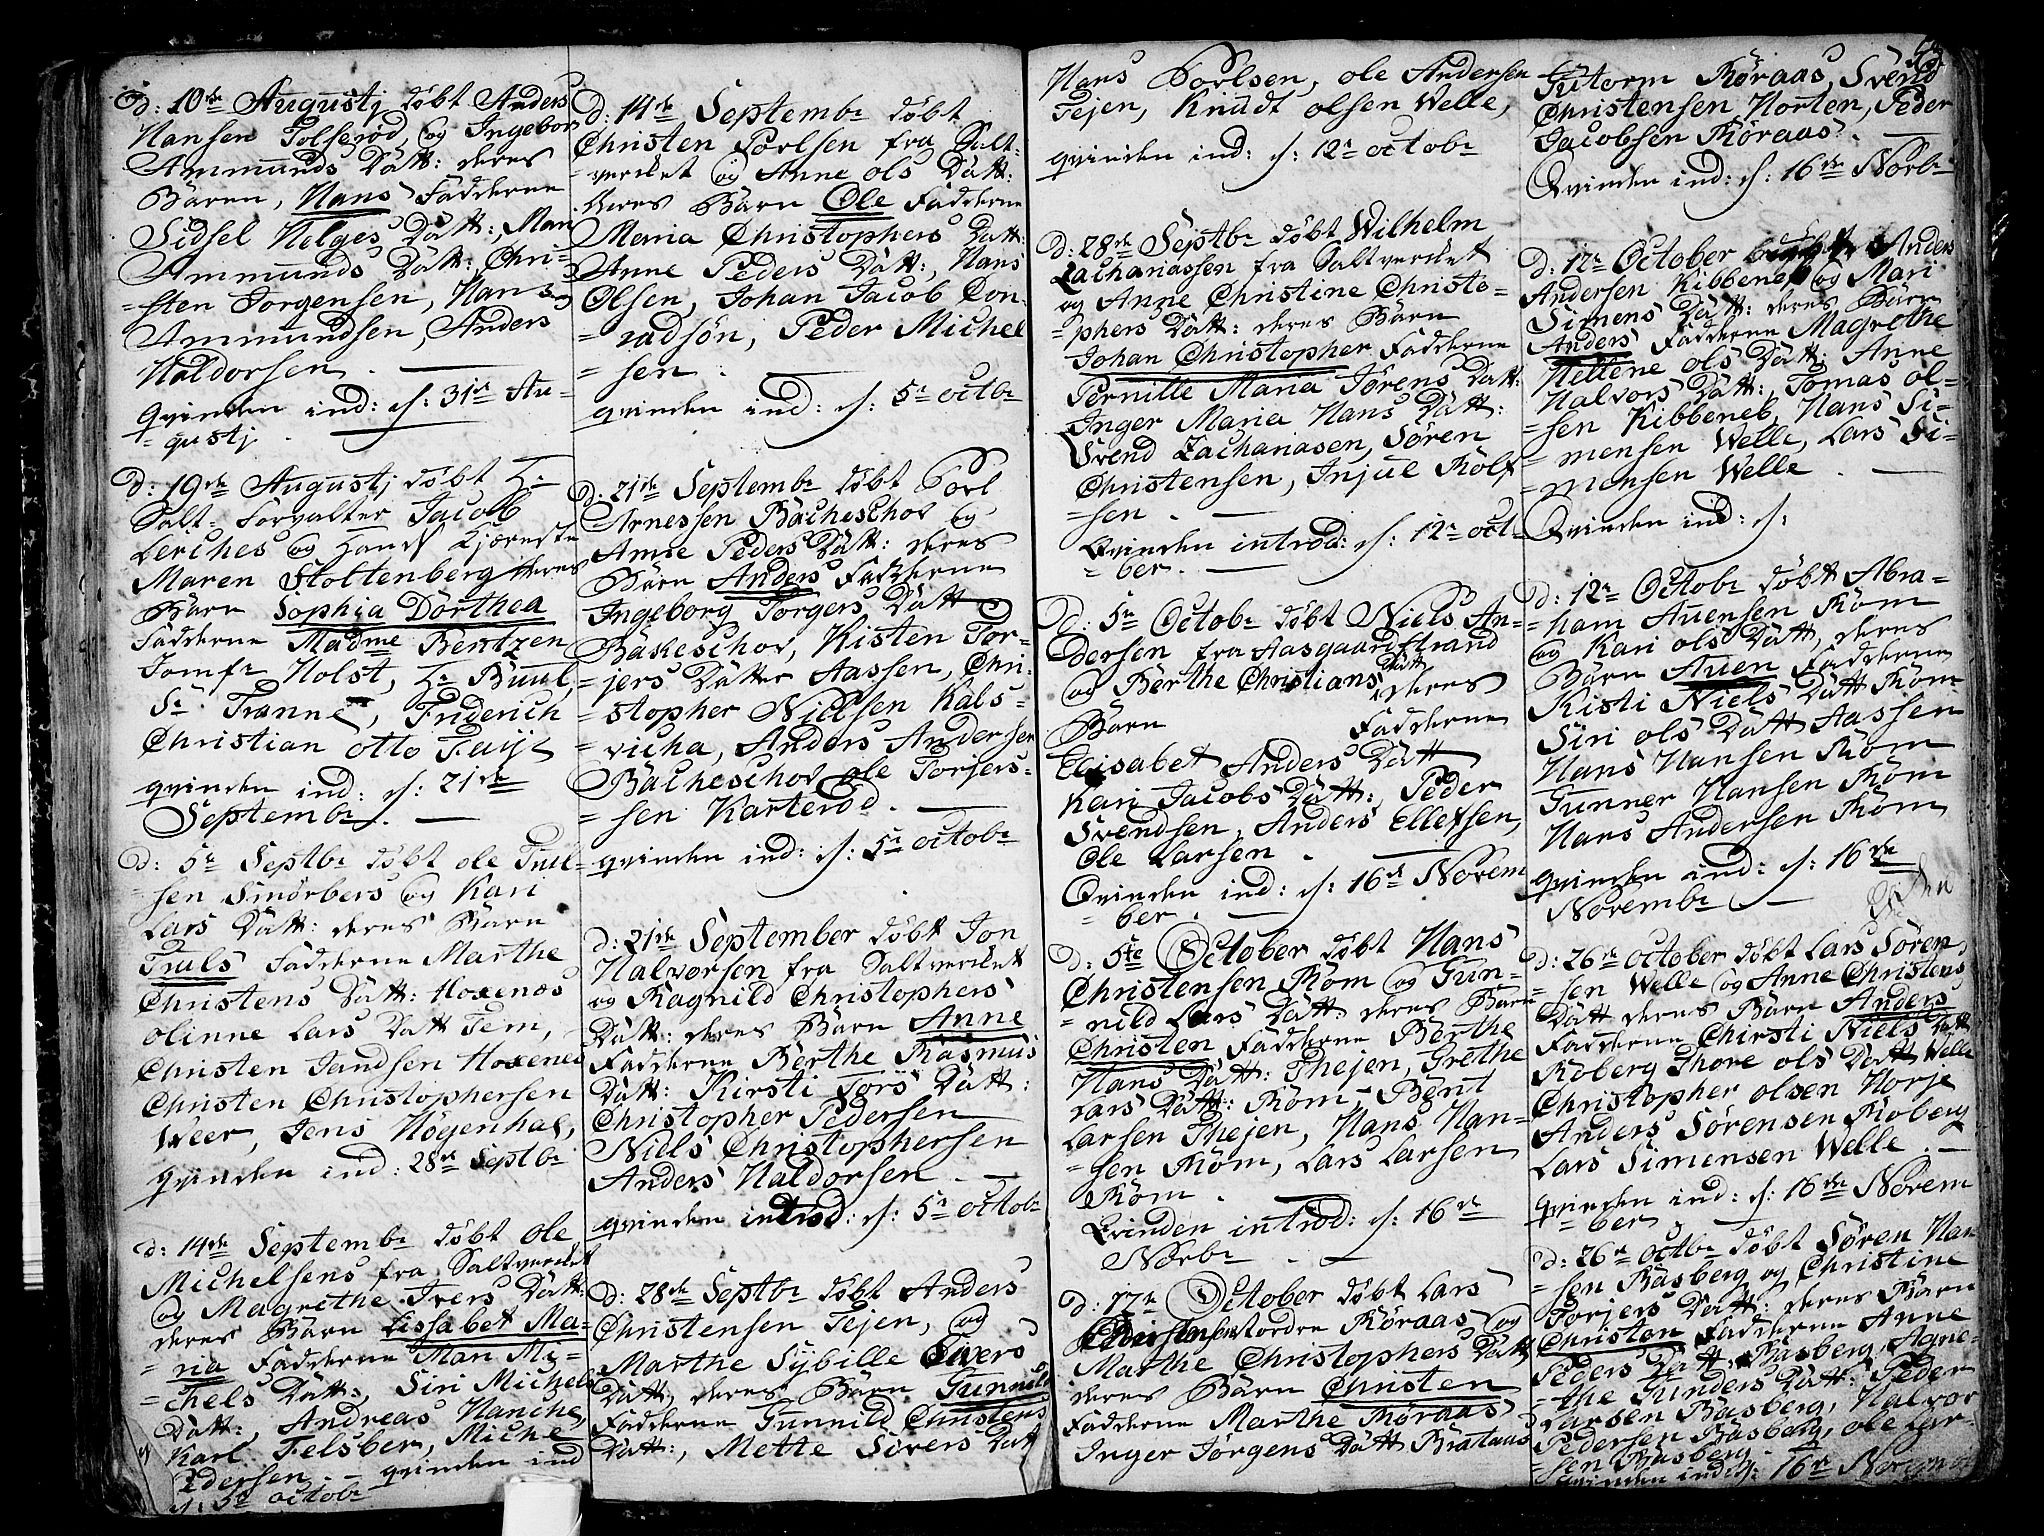 d: 10de Augustj döbt Anders
Hansen Tolserød og Ingebor
Ammunds Dätt: deres
Bären, Hans Fadderne
Sidsel Helges Dätt:, Mari
Ammunds Dätt: Chri-
-sten Jorgensen, Hans
Ammundsen, Anders
Haldorsen.
qvinden ind: d: 31te Au-
-gustj.
d: 19de Augustj döbt Hr
Salt-Forvalter Jacob
Lerches og Hans Kjæreste
Maren Stoltenberg deres
Bärn Sophia Dorthea
Fadderne Madme Bentzen
Jomfr Holst, Hr Buul,
Sr Tranne, Friderich
Christian otto Faije
qvinden ind: d: 21de
Septembr.
d: 5te Septbr döbt ole Trul-
-sen Smörberg og Kari
Lars Dätt: deres Bärn
Truls Fadderne Marthe
Christens Dätt: Hoxenæs
olinne Lars Datt Tem,
Christen Jandsen Hoxenes
Christen Christophersen
Weer, Jens Högenhal,
qvinden ind: 28de Septbr
d: 14de Septembr döbt ole
Michelsens fra Saltverket
og Magrethe Ivers Dätt:
deres Bärn Lissabet Ma-
-ria Fadderne Mari Mi-
-chels Dätt:, Siri Michels
Dätt:, Andreas Hanche,
Karl Felsber, Michel
Pdersen. qvinden ind
d: 5te octobr
d: 14de Septembr döbt
Christen Porlsen fra Salt-
verket og Anne ols Dätt:
deres Bärn Ole Fadderne
Maria Christophers Datt:
Anne Peders Dätt:, Hans
Olsen, Johan Jacob Con-
-radsön, Peder Michel
-sen.
qvinden ind: d: 5te octobr
d: 21de Septembr döbt Porl
Arnessen Bacheschov og
Anne Peders Dätt: deres
Bärn Anders Fadderne
Ingeborg Torgers Dätt
Bäkeschov, Kisten Tor-
-jers Datter Aassen, Chri-
-stopher Nielsen Kals-
-vicha, Anders Andersen
Bächeschov ole Torjers-
-sen Karterød.
qvinden ind: d: 5te octobr
d: 21de September döbt Jon
Halvorsen fra Saltverket
og Ragnild Christophers
Dätt: deres Bärn Anne
Fadderne Berthe Rasmus
Dätt: Kirsti Tors Dätt:
Christopher Pedersen
Niels Christophersen
Anders Haldorsen.
qvinden introd: d: 5te octobr
d: 28de Septbr döbt Anders
Christensen Tejen, og
Marthe Sybille Sivers
Dätt, deres Bärn Gunnild
Fadderne Gunnild Christens
Dätt:, Mette Sörens Datt
Hans Porlsen, ole Andersen
Tejen, Knudt olsen Welle,
qvinden ind: d: 12te octobr
d: 28de Septbr döbt Wilhelm
Zachariassen fra Saltverket
og Anne Christine Christo-
-phers Dätt: deres Bärn
Johan Christopher Fadderne
Pernille Maria Jörens Dätt:
Inger Maria Hans Dätt:
Svend Zachariasen, Sören
Christensen, Injul Rolf
-sen.
Qvinden introd: d: 12te octo-
-ber.
d: 5te Octobr döbt Niels An-
dersen fra Aasgaardstrand
og Berthe Christians Dätt deres
Bärn Fadderne
Elisabet Anders Dätt
Kari Jacobs Dätt:, Peder
Svendsen, Anders Ellefsen,
Ole Larsen.
Qvinden ind: d: 16de Novem
-ber.
d: 5te October döbt Hans
Christensen Röm og Gun-
-nild Lars Dätt deres Bärn
Christen Fadderne Berthe
Hans Dätt: Thejen, Grethe
Lars Dätt: Röm, Bent
Larsen Thejen, Hans Han-
-sen Röm, Lars Larsen
Röm.
Qvinden introd: d: 16de
Novbr
d: 12te October döbt Lars
Röraas og
Marthe Christophers Dätt
deres Bärn Christen
Fadderne Marthe Röraas
Inger Jörgens Dätt Brataas
Gutorm Röraas, Svend
Christensen Horten, Peder
Jacobsen Röraas.
Qvinden ind: d: 16de Novbr
d: 12te October döbt Anders
Andersen Kibbeneb og Mari
Simens Dätt: deres Bärn
Anders Fadderne Magrethe
Hellene ols Dätt: Anne
Halvors Dätt:, Tomas ol-
-sen Kibbeneb, Hans Si-
-mensen Welle, Lars Si-
-mensen Welle.
Qvinden ind: d:
d: 12te Octobr döbt Abra-
-ham Auensen Röm
og Kari ols Dätt, deres
Bärn Auen Fadderne
Kisti Niels Dätt Röm
Siri ols Dätt Aassen
Hans Hansen Röm
Gunner Hansen Röm
Hans Andersen Röm
qvinden ind: d: 16de
Novembr
d: 26de october döbt Lars Sören
-sen Welle og Anne Christens
Dätt deres Bärn Anders
Fadderne Chirsti Niels Dätt
Roberg Thore ols Dätt Welle
Christopher olsen Horje
Anders Sörensen Roberg
Lars Simensen Welle.
qvinden ind: d: 16de Novem
-ber
d: 26de octbr döbt Sören Han
-sen Basberg og Christine
Torjers Dätt: deres Bärn
Christen Fadderne Anne
Peders Dätt, Basberg, Agne-
-the Gunders Dätt: Peder
Larsen Basberg, Halvor
Pedersen Basberg, ole Lar-
-sen Basberg.
qvinden ind: d: 16de Novemb